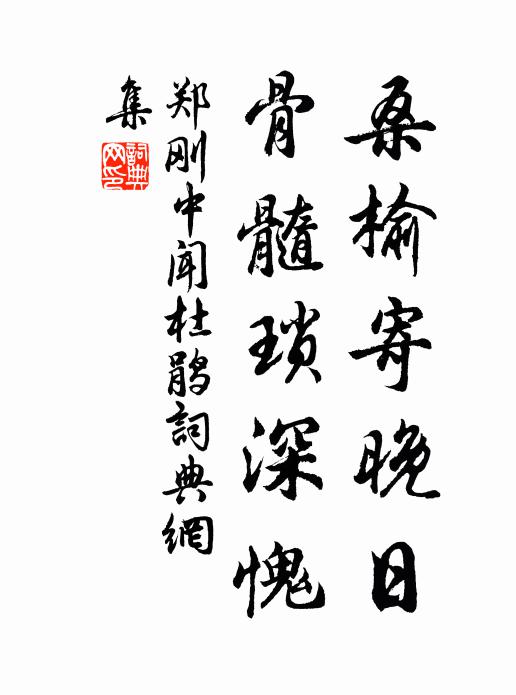 桑榆寄晚日
骨髓琐深愧
郑刚中闻杜鹃詞典網
集
詞典網印